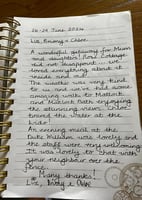 21-24 June 2024
Liz, Emmy & Chloe.
A wonderful getaway for Mum
and daughters! Rose Cottage
did not disappoint - we
loved everything about it
inside and out.
The weather was very kind
to us and we've had some
amazing walks to Matlock
and Matlock Bath enjoying
the stunning views.
toured the water at the
An evening meal at the
Duke William was lovely and
the staff were very welcoming.
It was lovely to "chat" with
your neighbour over the
fence.
Many thanks!
Liz, & Chloe